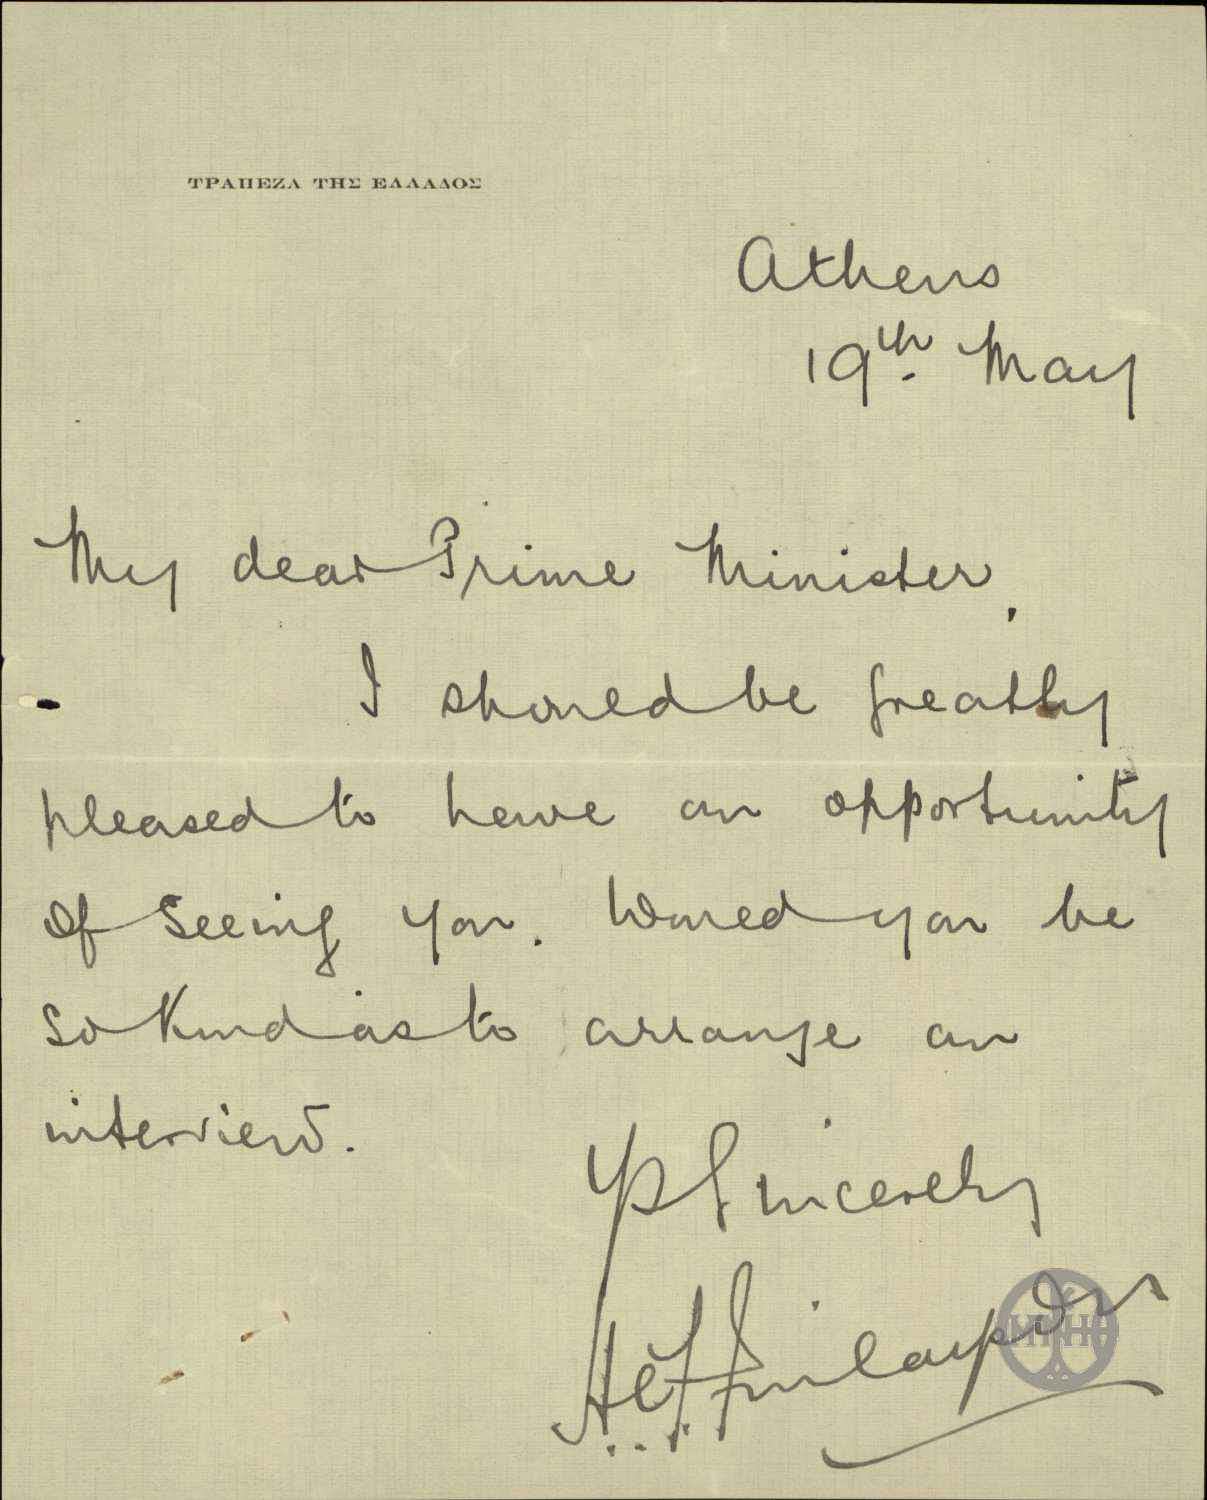 ΤΡΑΠΕΖΑ ΤΗΣ ΕΛΛΑΔΟΣ
Athens
19th May
My dear Prime Minister,
I should be greatly
pleased to have an opportunity
of seeing you. Would you be
so kind as to arrange an
interview.
Yrs Sincerely
H.C.F. Finlayson